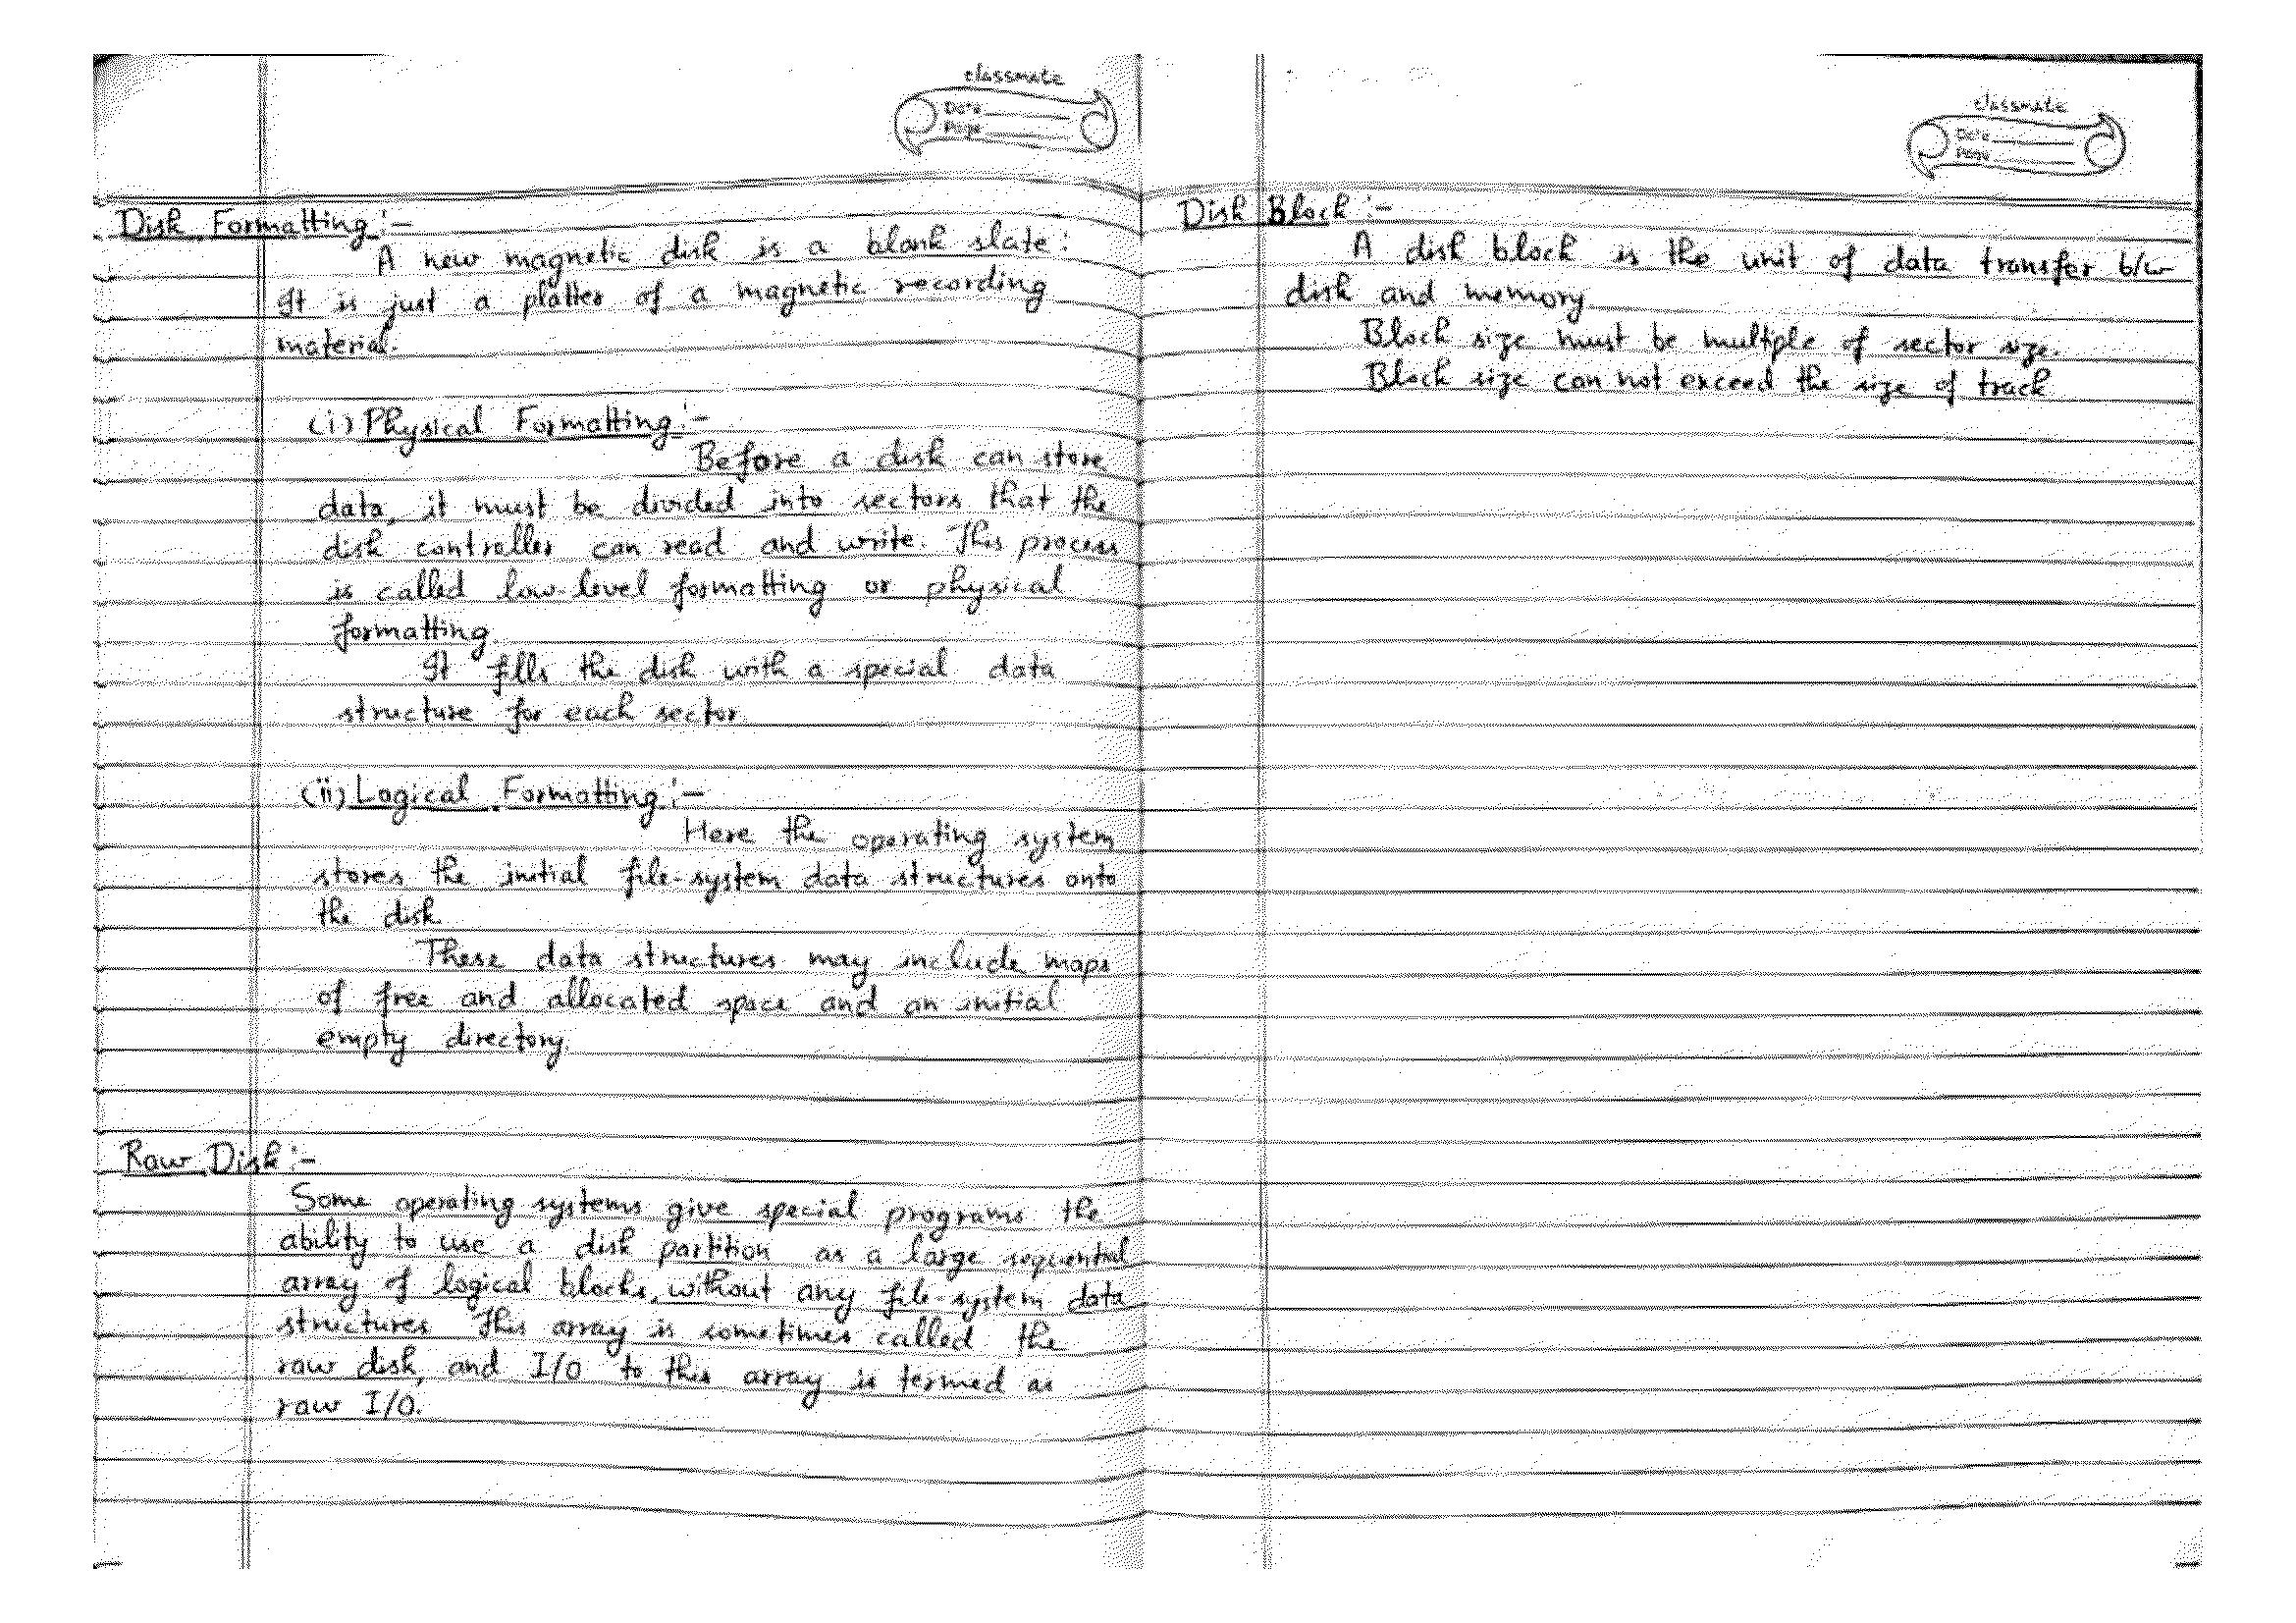 classmate
Date
Page
Disk Formatting :-
A new magnetic disk is a blank slate :
It is just a platter of a magnetic recording
material.
(i) Physical Formatting :-
Before a disk can store
data, it must be divided into sectors that the
disk controller can read and write. This process
is called low-level formatting or physical
formatting.
It fills the disk with a special data
structure for each sector.
(ii) Logical Formatting :-
Here the operating system
stores the initial file-system data structures onto
the disk.
These data structures may include maps
of free and allocated space and an initial
empty directory.
Raw Disk :-
Some operating systems give special programs the
ability to use a disk partition as a large sequential
array of logical blocks, without any file-system data
structures. This array is sometimes called the
raw disk, and I/O to this array is termed as
raw I/O.
classmate
Date
Page
Disk Block :-
A disk block is the unit of data transfer b/w
disk and memory.
Block size must be multple of sector size.
Block size can not exceed the size of track